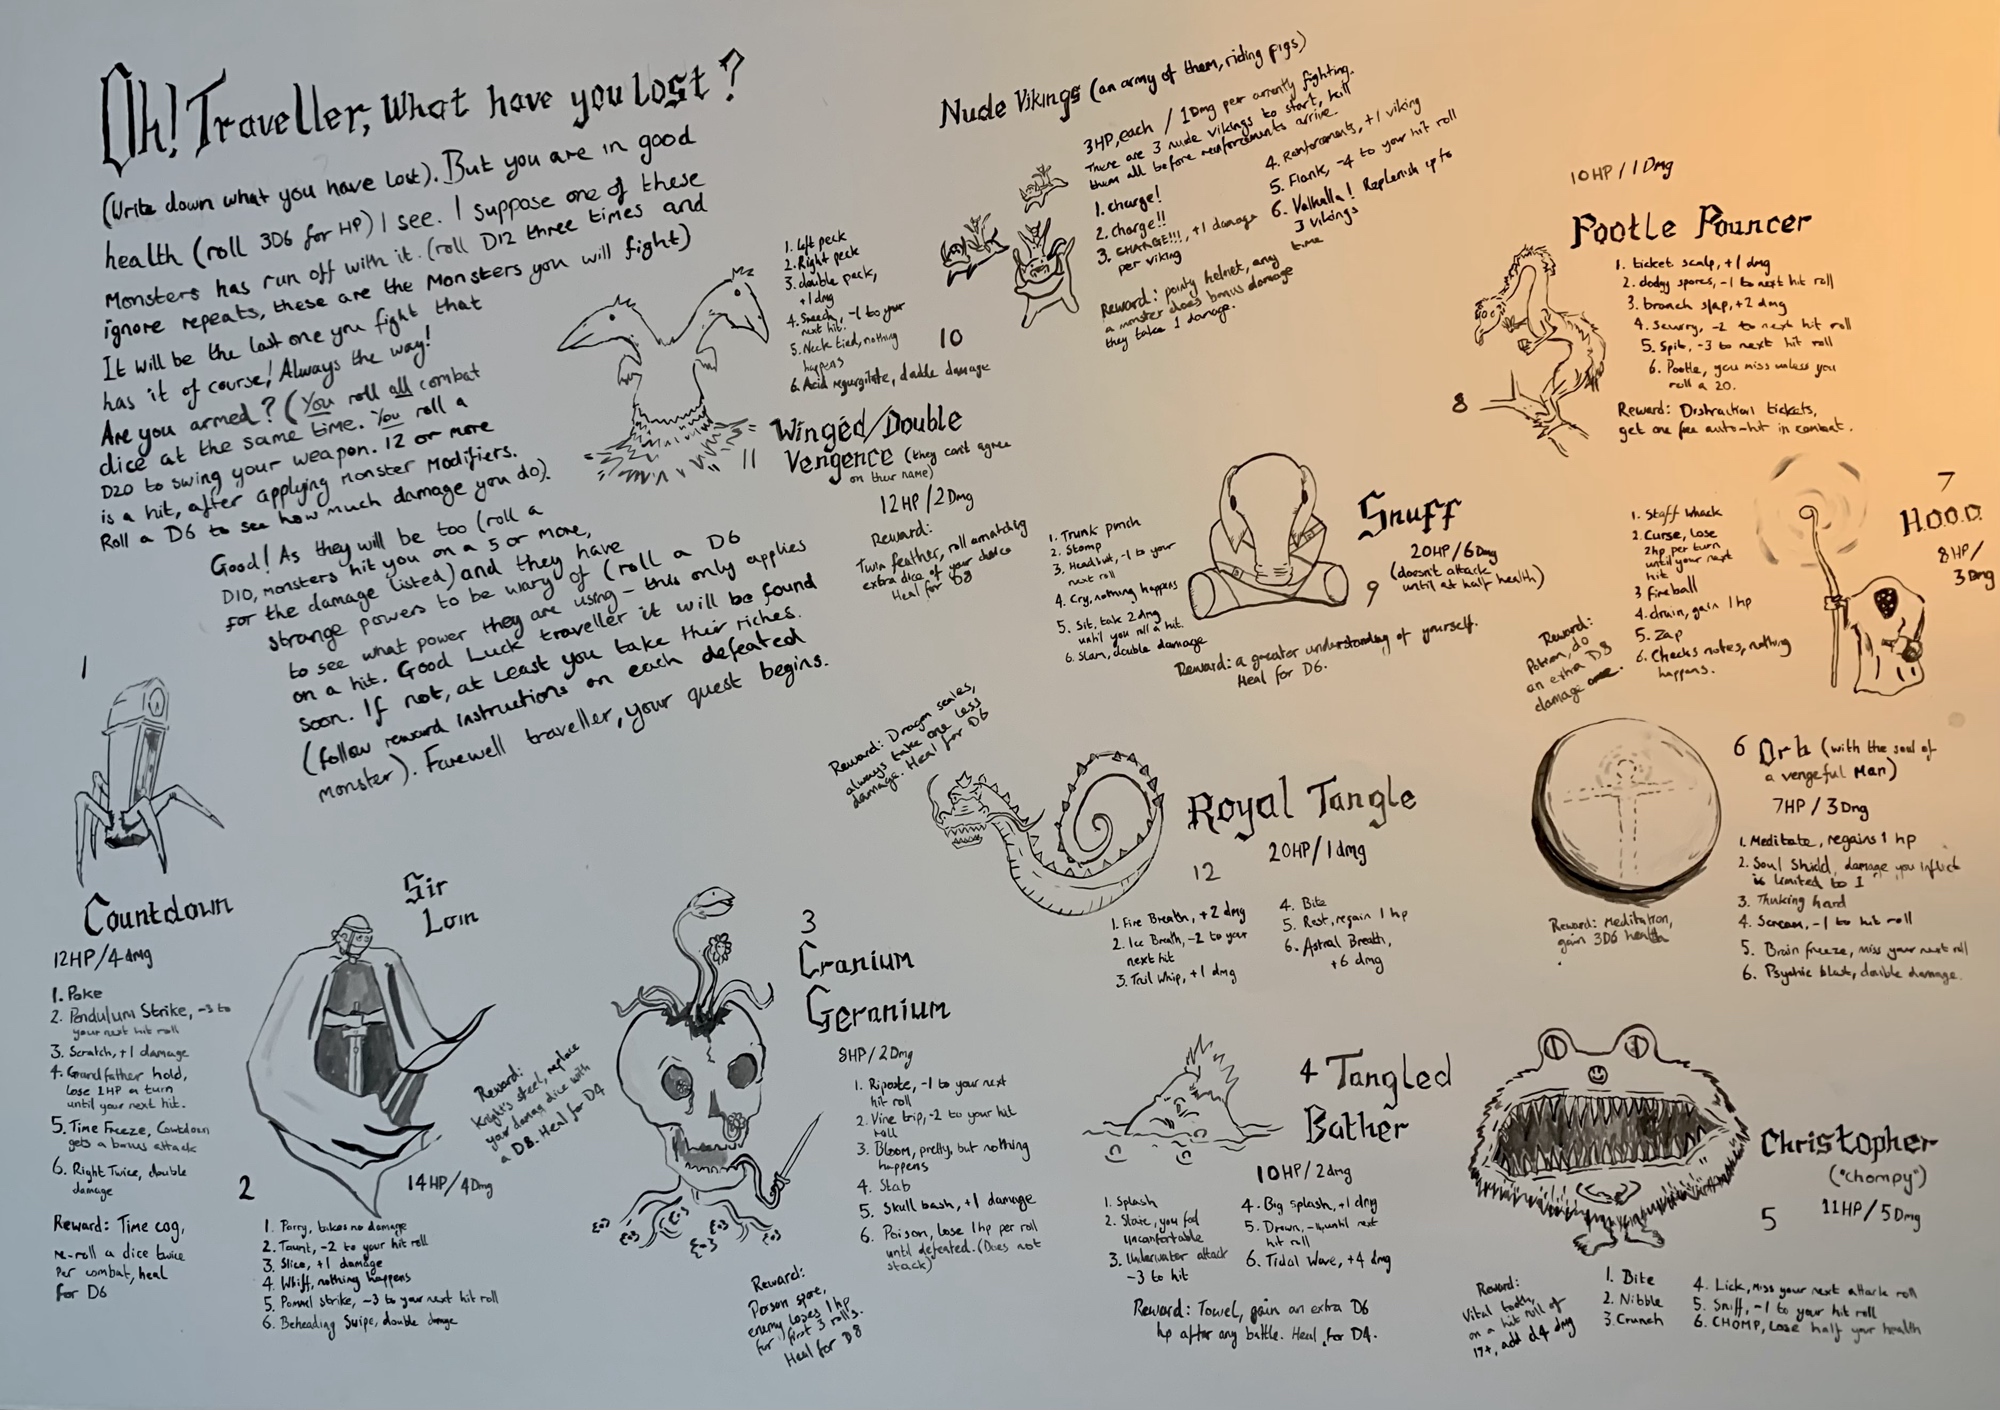 Oh! Traveller, what have you lost?
(Write down what you have lost). But you are in good
health (roll 3D6 for HP) I see. I suppose one of these
Monsters has run off with it. (roll D12 three times and
ignore repeats, these are the Monsters you will fight)
It will be the last one you fight that
has it of course! Always the way!
Are you armed? (You roll all combat
dice at the same time. You roll a
D20 to swing your weapon. 12 or more
is a hit, after applying monster modifiers.
Roll a D6 to see how much damage you do).
Good! As they will be too (roll a
D10, monsters hit you on a 5 or more,
for the damage listed) and they have
strange powers to be wary of (roll a D6
to see what power they are using - this only applies
on a hit. Good Luck traveller it will be found
soon. If not, at least you take their riches.
(follow reward instructions on each defeated
monster). Farewell traveller, your quest begins.
Nude Vikings (an army of them, riding pigs)
3HP, each / 1Dmg per currently fighting.
There are 3 nude vikings to start, kill
them all before reinforcements arrive.
1. Charge!
2. Charge!!
3. CHARGE!!!, +1 damage
per viking
4. Reinforcements, +1 viking
5. Flank, -4 to your hit roll
6. Valhalla! Replenish up to
3 vikings
Reward: pointy helmet, any time
a monster does bonus damage
they take 1 damage.
10
1. Left peck
2. Right peck
3. double peck,
+1 dmg
4. Screech, -1 to your
next hit.
5. Neck tied, nothing
happens
6. Acid regurgitate, double damage
Wingéd/Double
Vengence (they can't agree
on their name)
11
12HP/2Dmg
Reward:
Twin feather, roll a matching
extra dice of your choice
Heal for D8
10HP/1Dmg
Pootle Pouncer
1. ticket scalp, +1 dmg
2. dodgy spores, -1 to next hit roll
3. branch slap, +2 dmg
4. Scurry, -2 to next hit roll
5. Spit, -3 to next hit roll
6. Pootle, you miss unless you
roll a 20.
8
Reward: Distraction tickets,
get one free auto-hit in combat.
Snuff
20HP/6Dmg
(doesn't attack
until at half health)
9
1. Trunk punch
2. Stomp
3. Headbut, -1 to your
next roll
4. Cry, nothing happens
5. Sit, take 2dmg
until you roll a hit.
6. Slam, double damage
Reward: a greater understanding of yourself.
Heal for D6.
7
H.O.O.D.
8HP/
3Dmg
1. Staff Whack
2. Curse, lose
2hp per turn
until your next
hit
3 Fireball
4. drain, gain 1hp
5. Zap
6. Checks notes, nothing
happens.
Reward:
Potion, do
an extra D8
damage once.
1
Countdown
12HP/4dmg
1. Poke
2. Pendulum Strike, -3 to
your next hit roll
3. Scratch, +1 damage
4. Grandfather hold,
lose 1HP a turn
until your next hit.
5. Time Freeze, Countdown
gets a bonus attack
6. Right Twice, double
damage
Reward: Time cog,
re-roll a dice twice
per combat, heal
for D6
Sir
Loin
14HP/4Dmg
2
1. Parry, takes no damage
2. Taunt, -2 to your hit roll
3. Slice, +1 damage
4. Whiff, nothing happens
5. Pommel strike, -3 to your next hit roll
6. Beheading Swipe, double damage
Reward:
Knight's steel, replace
your damage dice with
a D8. Heal for D4
3
Cranium
Geranium
8HP/2Dmg
1. Riposte, -1 to your next
hit roll
2. Vine trip, -2 to your hit
roll
3. Bloom, pretty, but nothing
happens
4. Stab
5. Skull bash, +1 damage
6. Poison, lose 1hp per roll
until defeated. (Does not
stack)
Reward:
Poison spore,
enemy loses 1hp
for first 3 rolls.
Heal for D8
Reward: Dragon scales,
always take one less
damage. Heal for D6
Royal Tangle
20HP/1dmg
12
1. Fire Breath, +2 dmg
2. Ice Breath, -2 to your
next hit
3. Tail Whip, +1 dmg
4. Bite
5. Rest, regain 1hp
6. Astral Breath,
+6 dmg
6 Orb (with the soul of
a vengeful Man)
7HP/3Dmg
1. Meditate, regains 1 hp
2. Soul Shield, damage you inflict
is limited to 1
3. Thinking hard
4. Scream, -1 to hit roll
5. Brain freeze, miss your next roll
6. Psychic blast, double damage.
Reward: Meditation,
gain 3D6 health
4 Tangled
Bather
10HP/2dmg
1. Splash
2. Stare, you feel
uncomfortable
3. Underwater attack
-3 to hit
4. Big splash, +1 dmg
5. Drown, until next
hit roll
6. Tidal Wave, +4 dmg
Reward: Towel, gain an extra D6
hp after any battle. Heal for D4.
Christopher
("chompy")
5
11HP/5Dmg
1. Bite
2. Nibble
3. Crunch
4. Lick, miss your next attack roll
5. Sniff, -1 to your hit roll
6. CHOMP, lose half your health
Reward:
Vital tooth,
on a hit roll of
17+, add d4 dmg